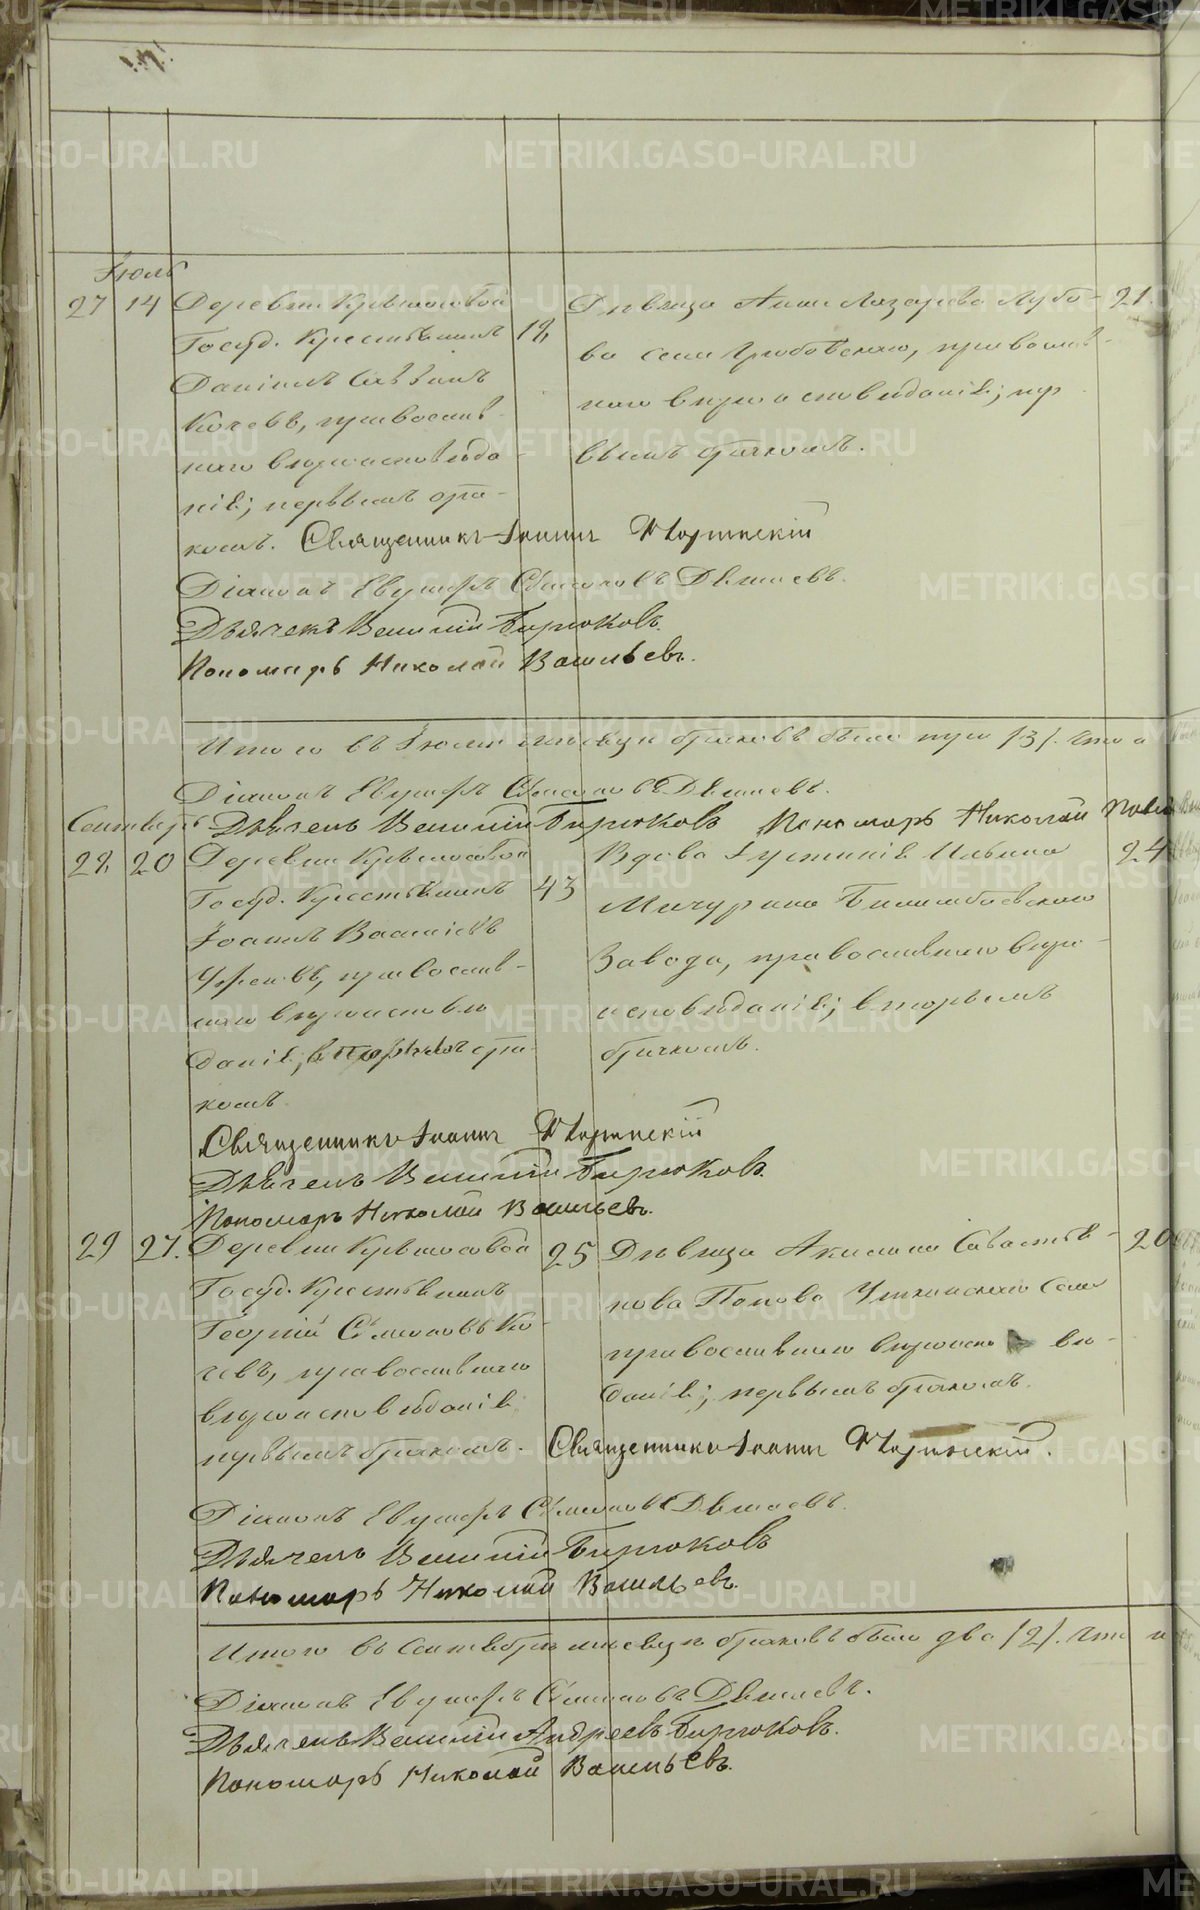 METRIKI.GASO-URAL.RU
Іюль
27 14 Деревни Крылосовой
Госуд. Крестьянинъ 18
Данiилъ
Кочевъ, православ-
наго вѣроисповѣда-
нiя; первымъ бра-
комъ.
Дѣвица Анна Лазарева Лубо- 21.
ва села Гробовскаго, православ-
наго вѣроисповѣданiя; пер
вымъ бракомъ.
Священникъ Іоаннъ
Дiаконъ Симоновъ
Дьячекъ Василiй Бирюковъ.
Пономарь Николай Васильевъ.
Итого въ Іюлѣ мѣсяцѣ браковъ было три /3/. Что и
Дiаконъ Симоновъ
Дьячекъ Василiй Бирюковъ Пономарь Николай
Сентябрь
28 20 Деревни Крылосовой
Госуд. Крестьянинъ 43
Іоаннъ Васильевъ
православ-
наго вѣроисповѣ
данiя; вторымъ бра-
комъ.
Вдова Іустинiя Ильина 24
Мичурина Билимбаевскаго
Завода, православнаго вѣро-
исповѣданiя; вторымъ
бракомъ.
Священникъ Іоаннъ
Дьячекъ Василiй Бирюковъ.
Пономарь Николай Васильевъ.
29 27. Деревни Крылосовой
Госуд. Крестьянинъ 25
Георгiй Симоновъ Ко-
чевъ, православнаго
вѣроисповѣданiя;
первымъ бракомъ.
Дѣвица Акилина Савастья- 20
нова Попова Уткинскаго села
православнаго вѣроиспо вѣ-
данiя; первымъ бракомъ.
Священникъ Іоаннъ
Дiаконъ Симоновъ
Дьячекъ Василiй Бирюковъ
Пономарь Николай Васильевъ.
Итого въ Сентябрѣ мѣсяцѣ браковъ было два /2/. Что и
Дiаконъ Симоновъ
Дьячекъ Василiй Андреевъ Бирюковъ.
Пономарь Николай Васильевъ.